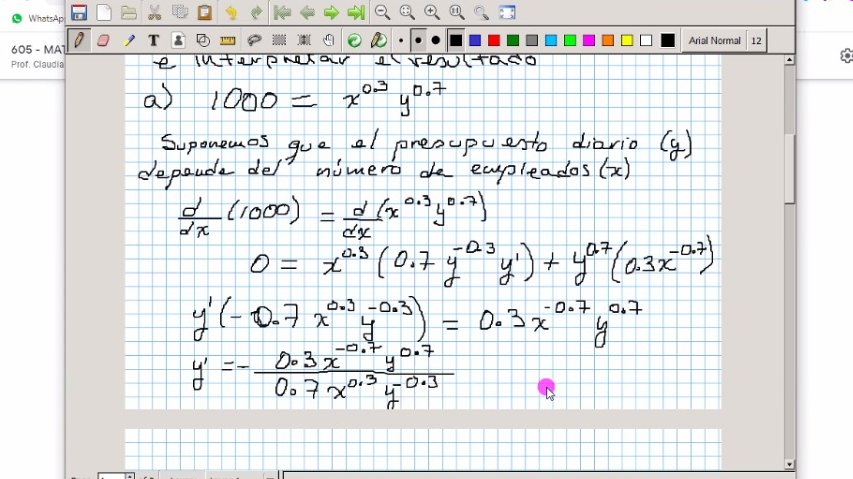 WhatsApp
605 - MAT
Prof. Claudia
Arial Normal 12
e interpretar el resultado
a) 1000 = x^0.3 y^0.7
Suponemos que el presupuesto diario (y)
depende del número de empleados (x)
d/dx (1000) = d/dx (x^0.3 y^0.7)
0 = x^0.3 (0.7 y^-0.3 y') + y^0.7 (0.3x^-0.7)
y' (-0.7 x^0.3 y^-0.3) = 0.3x^-0.7 y^0.7
y' = - 0.3x^-0.7 y^0.7 / 0.7x^0.3 y^-0.3